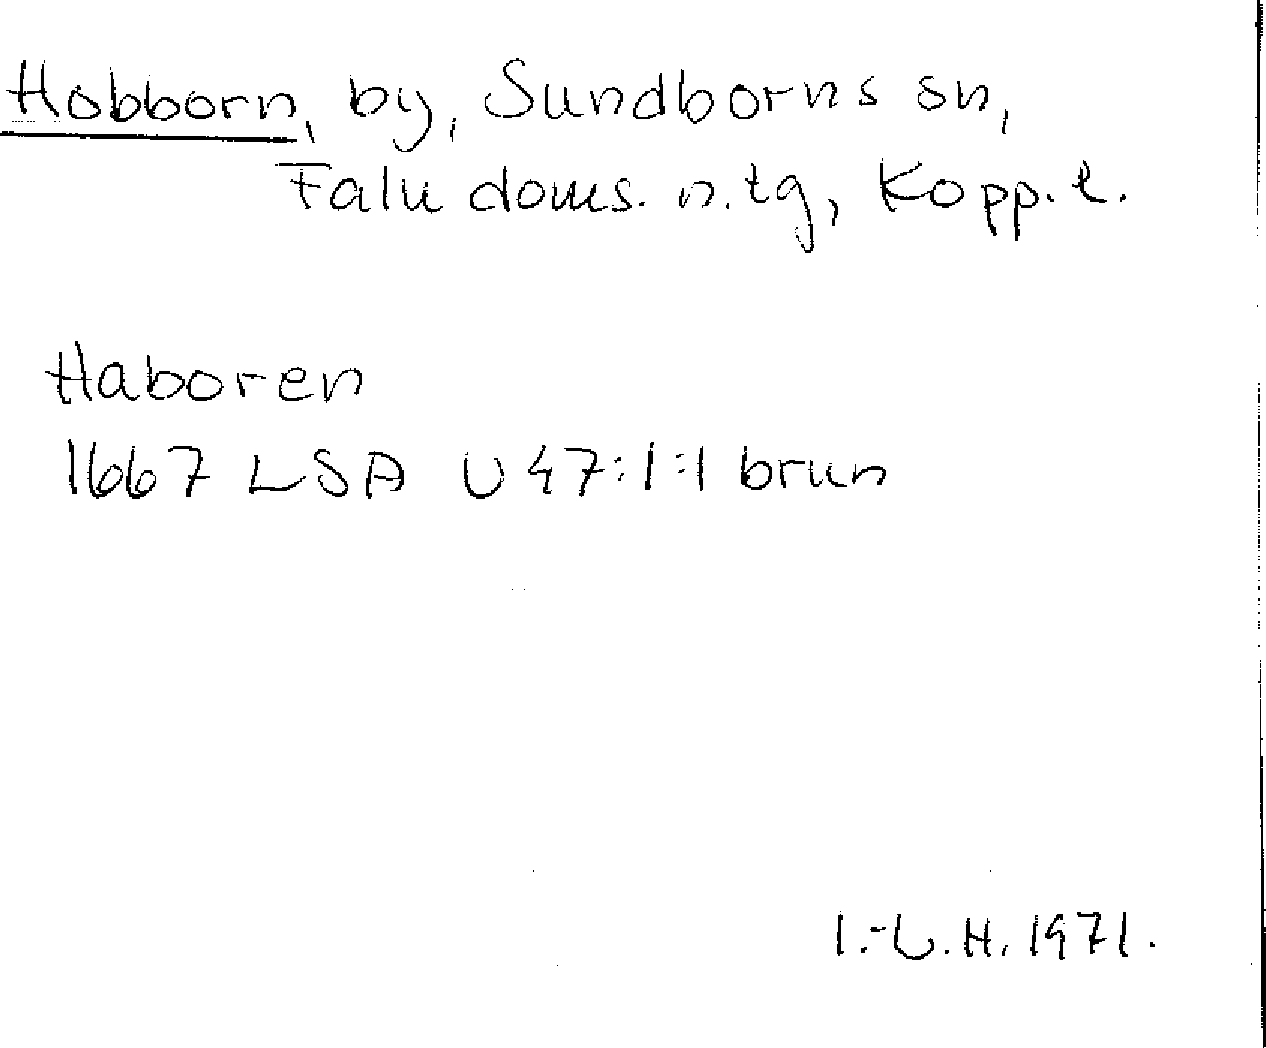 Hobborn, by, Sundborns sn,
Falu doms. n. tg, Kopp. l.
Haboren
1667 LSA U 47:1:1 brun
I.-L. H. 1971.